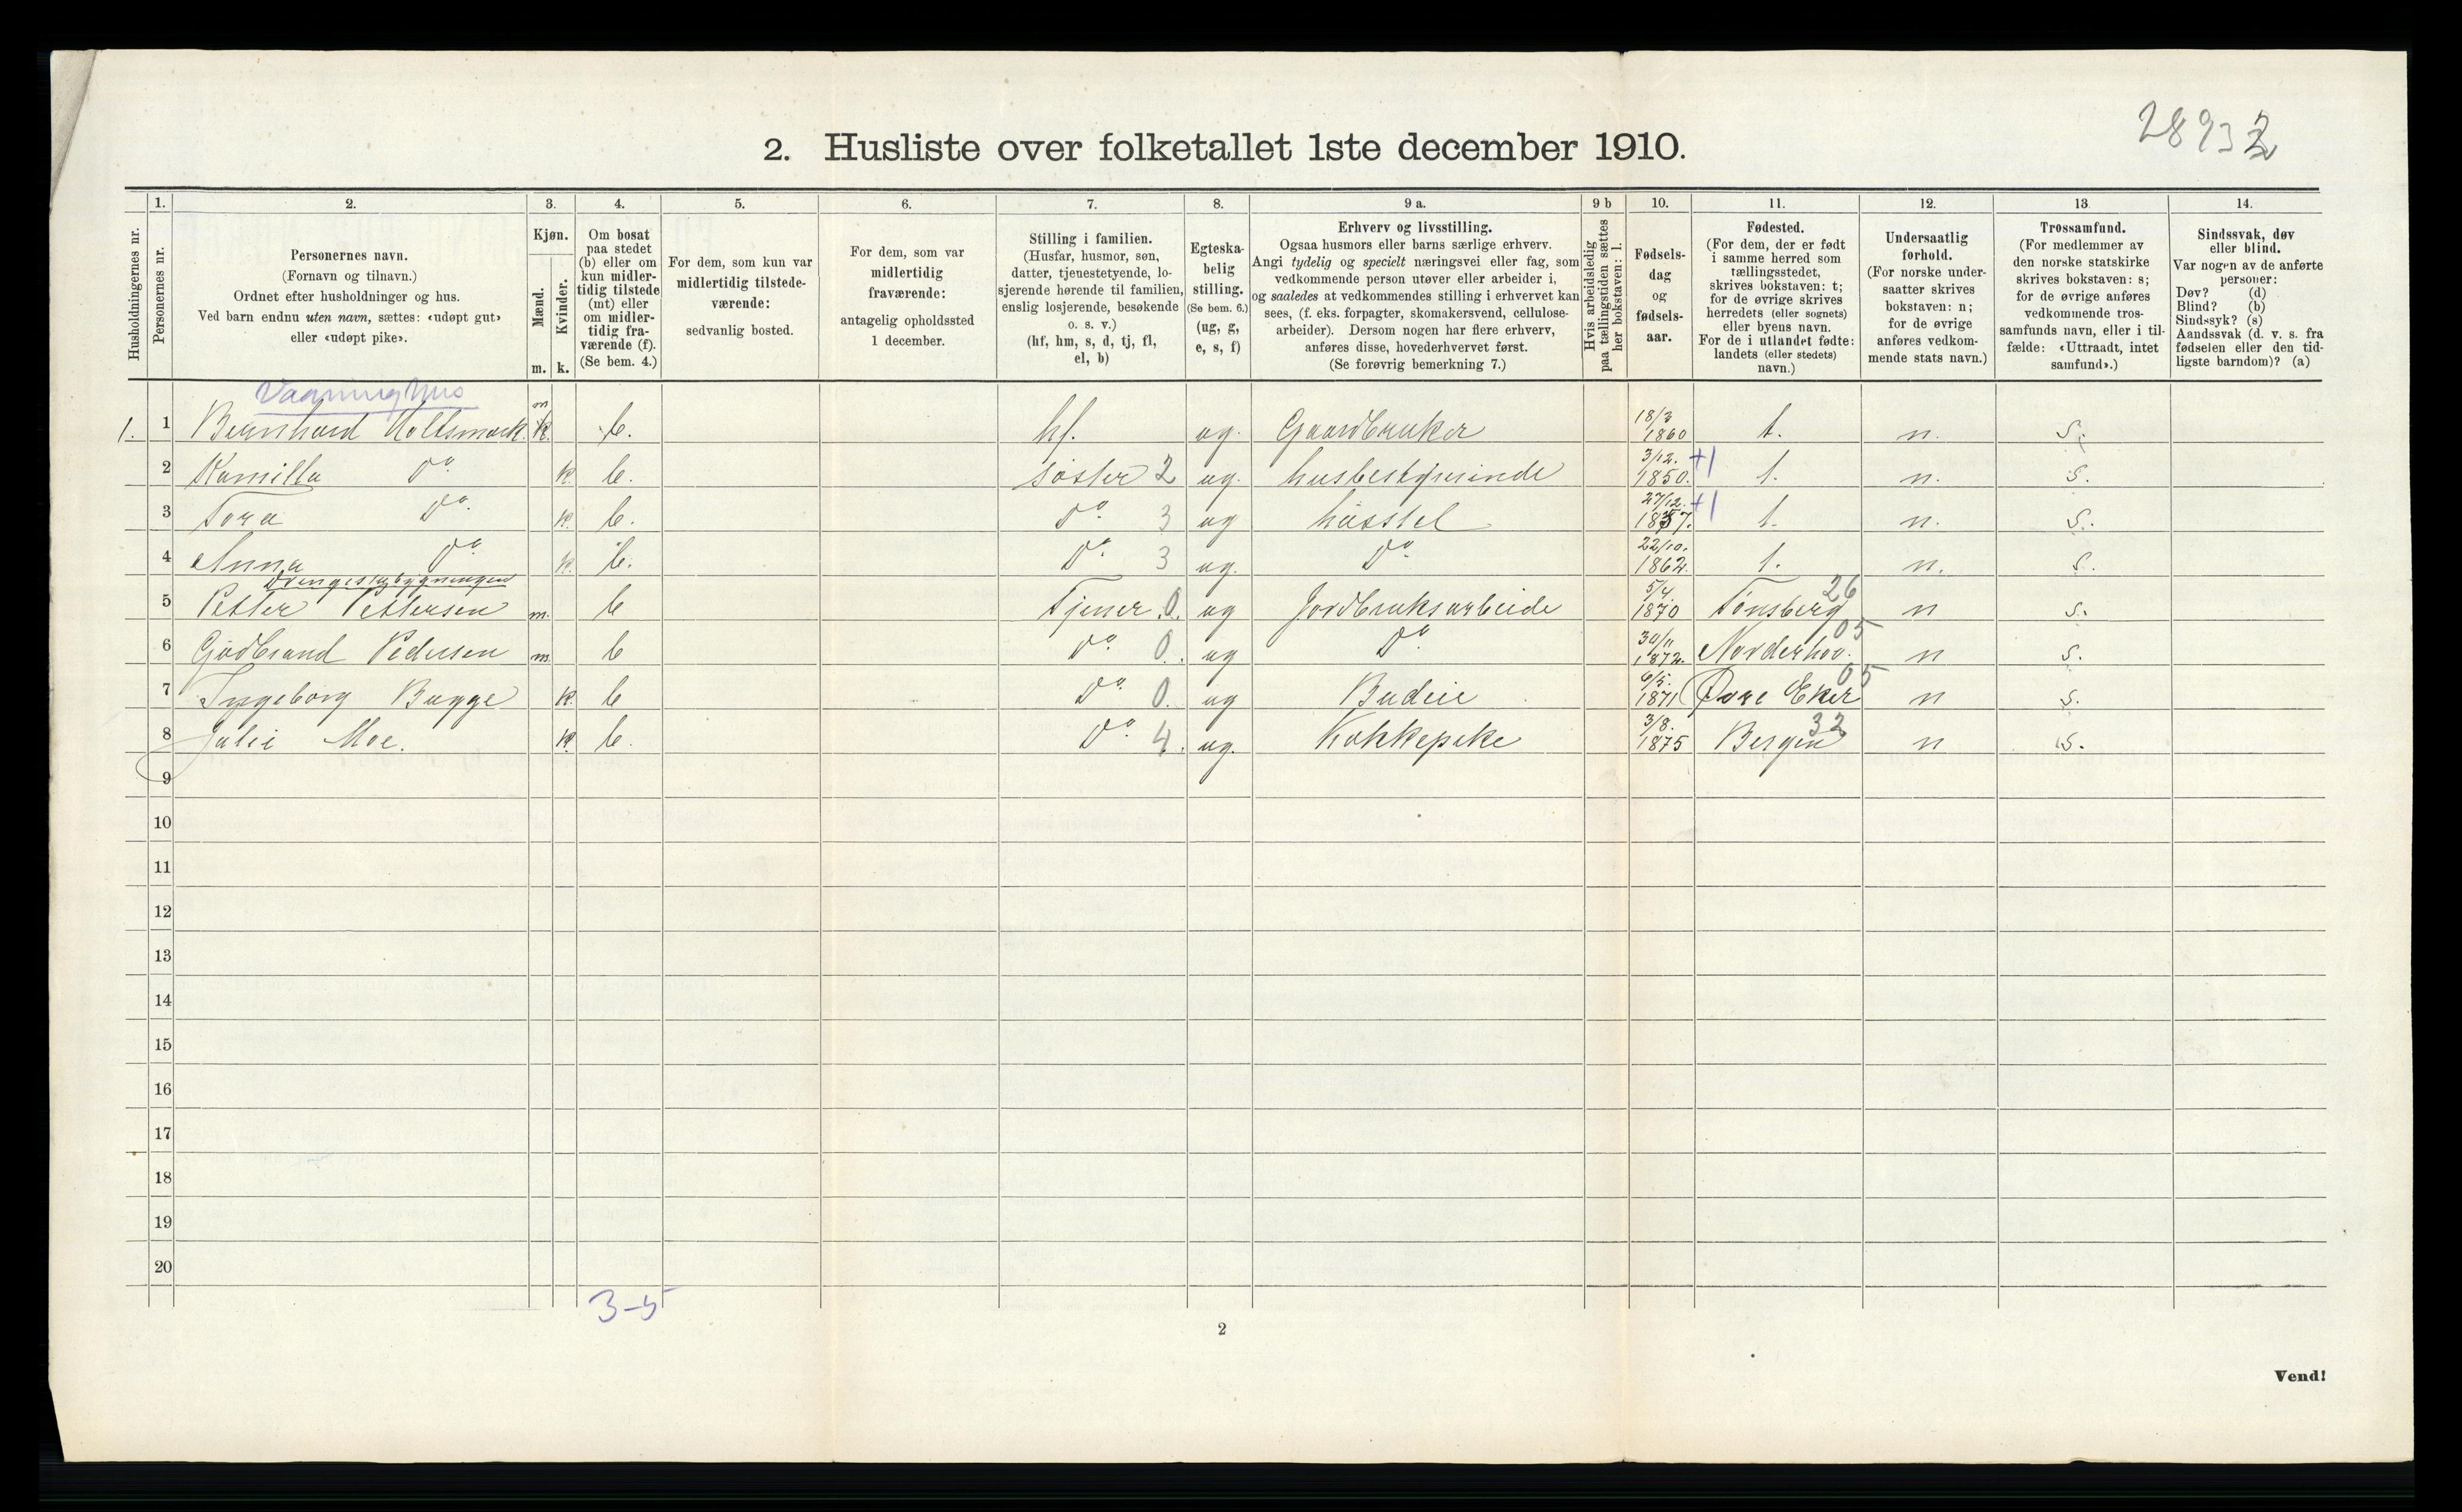 28932
2. Husliste over folketallet 1ste december 1910.
Husholdningernes nr.
1. Personernes nr.
2. Personernes navn. (Fornavn og tilnavn.) Ordnet efter husholdninger og hus. Ved barn endnu uten navn, sættes: «udøpt gut» eller «udøpt pike».
3. Kjøn. Mænd. m. Kvinder. k.
4. Om bosat paa stedet (b) eller om kun midlertidig tilstede (mt) eller om midlertidig fraværende (f). (Se bem. 4.)
5. For dem, som kun var midlertidig tilstedeværende: sedvanlig bosted.
6. For dem, som var midlertidig fraværende: antagelig opholdssted 1 december.
7. Stilling i familien. (Husfar, husmor, søn, datter, tjenestetyende, losjerende hørende til familien, enslig losjerende, besøkende o. s. v.) (hf, hm, s, d, tj, fl, el, b)
8. Egteskabelig stilling. (Se bem. 6.) (ug, g, e, s, f)
9 a. Erhverv og livsstilling. Ogsaa husmors eller barns særlige erhverv. Angi tydelig og specielt næringsvei eller fag, som vedkommende person utøver eller arbeider i, og saaledes at vedkommendes stilling i erhvervet kan sees, (f. eks. forpagter, skomakersvend, cellulosearbeider). Dersom nogen har flere erhverv, anføres disse, hovederhvervet først. (Se forøvrig bemerkning 7.)
9 b Hvis arbeidsledig paa tællingstiden sættes her bokstaven: l.
10. Fødselsdag og fødselsaar.
11. Fødested. (For dem, der er født i samme herred som tællingsstedet, skrives bokstaven: t; for de øvrige skrives herredets (eller sognets) eller byens navn. For de i utlandet fødte: landets (eller stedets) navn.)
12. Undersaatlig forhold. (For norske undersaatter skrives bokstaven: n; for de øvrige anføres vedkommende stats navn.)
13. Trossamfund. (For medlemmer av den norske statskirke skrives bokstaven: s; for de øvrige anføres vedkommende trossamfunds navn, eller i tilfælde: «Uttraadt, intet samfund».)
14. Sindssvak, døv eller blind. Var nogen av de anførte personer: Døv? (d) Blind? (b) Sindssyk? (s) Aandssvak (d. v. s. fra fødselen eller den tidligste barndom)? (a)
Vaaninghus
1. 1 Bernhard Holtsmark m k. b. hf. ug. Gaardbruker 18/3 1860 t. n. s.
2 Kamilla Do k b. søster 2 ug. husbestyrerinde 3/12. 1850. +1 t. n. s.
3 Tora Do. k. b. Do 3 ug hússtel 27/12. 1857. +1 t. n. s.
4 Anna Do k. b. Do. 3 ug. Do 22/10. 1862. t. n. s.
Drengestubygningen
5 Petter Pettersen m. b Tjener 0. ug Jordbruksarbeide 5/4. 1870 Tønsberg 26 n s.
6 Gudbrand Pedersen m. b Do 0. ug Do 30/11 1872. Norderhov. 05 n s.
7 Ingeborg Bugge k. b Do 0. ug Budeie 6/5. 1871 Øvre Eker 05 n s.
8 Julie Moe. k. b. Do 4. ug. Kokkepike 3/8. 1875 Bergen 32 n s.
9
10
11
12
13
14
15
16
17
18
19
20
3-5
2
Vend!